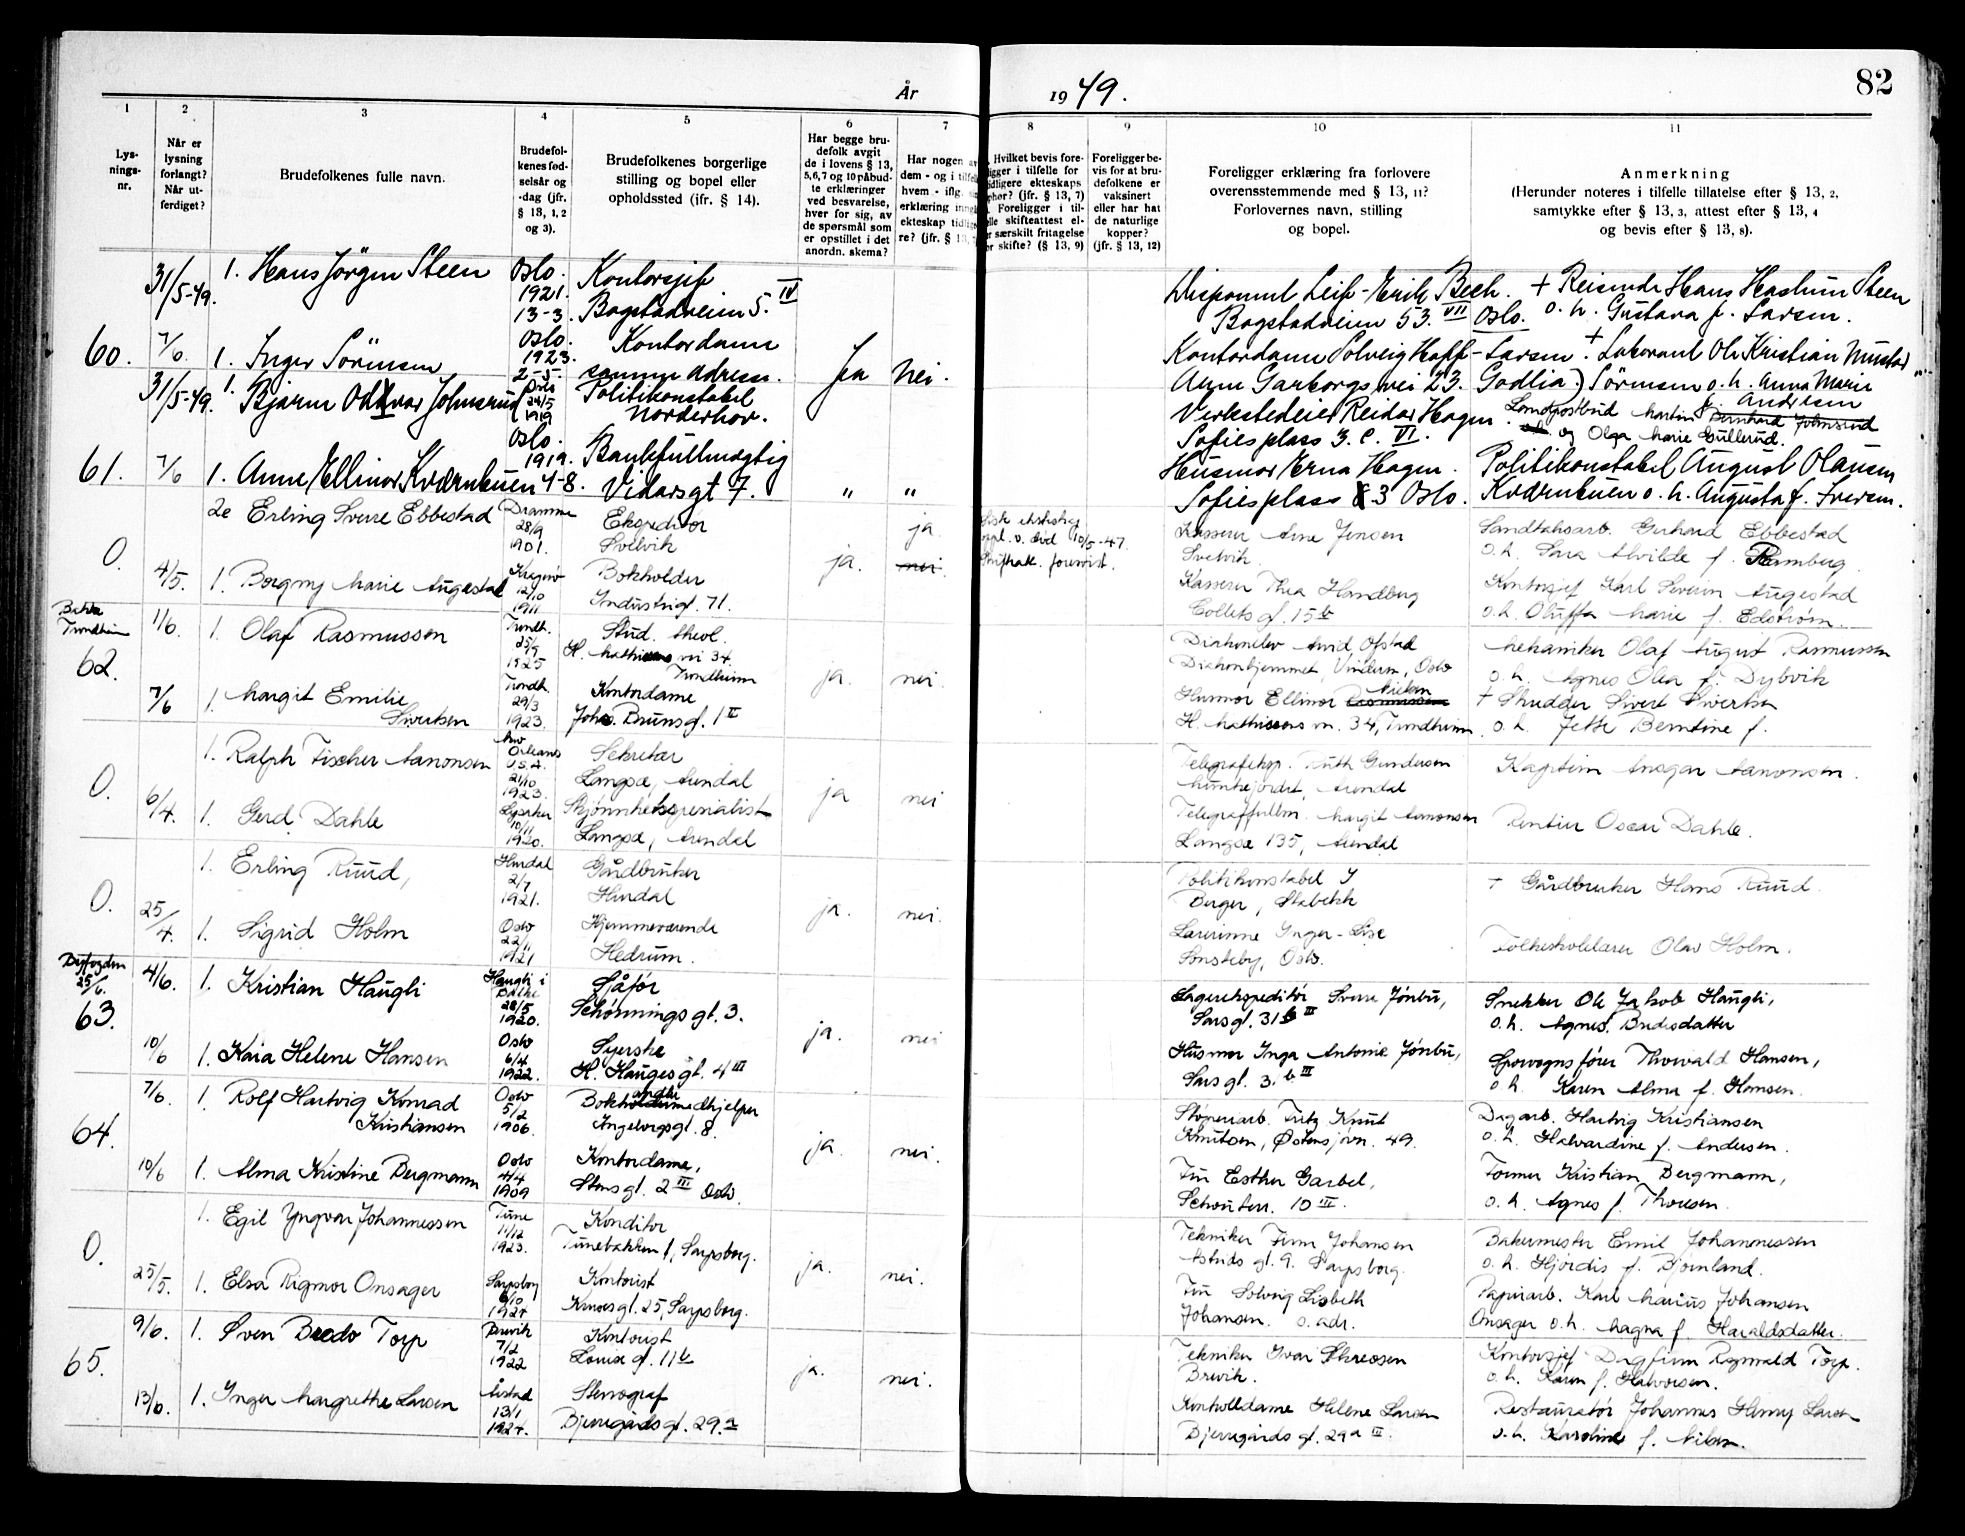 82
År 1949.
1 2 3 4 5 6 7 8 9 10 11
Lys-
nings-
nr.
Når er
lysning
forlangt?
Når ut-
ferdiget?
Brudefolkenes fulle navn.
Brudefol-
kenes fød-
selsår og
-dag (jfr.
§ 13, 1, 2
og 3).
Brudefolkenes borgerlige
stilling og bopel eller
opholdssted (jfr. § 14).
Har begge bru-
defolk avgit
de i lovens § 13,
5,6,7 og 10 påbud-
te erklæringer
ved besvarelse,
hver for sig, av
de spørsmål som
er opstillet i det
anordn. skema?
Har nogen av
dem - og i tilfelle
hvem - iflg.
erklæring inngått
ekteskap tidlige-
re? (jfr. § 13, 7
Hvilket bevis fore-
ligger i tilfelle for
tidligere ekteskaps
ophør? (jfr. § 13, 7)
Foreligger i til-
felle skifteattest el-
ler særskilt fritagelse
for skifte? (§ 13, 9)
Foreligger be-
vis for at bru-
defolkene er
vaksinert
eller har hat
de naturlige
kopper?
(jfr. § 13, 12)
Foreligger erklæring fra forlovere
overensstemmende med § 13, 11?
Forlovernes navn, stilling
og bopel.
Anmerkning
(Herunder noteres i tilfelle tillatelse efter § 13, 2.
samtykke efter § 13, 3, attest efter § 13, 4
og bevis efter § 13, 8).
60.
31/5-49. 1. Hans Jörgen Steen Oslo. 1921. 13-3. Kontorsjef Bogstadveien 5. IV
Disponent Leif-Erik Bech. Bogstadveien 53. VII Oslo.
+ Reisende Hans Haslum Steen o. h. Gustava f. Larsen.
7/6. 1. Inger Sörensen Oslo. 1923. 2-5. Kontordame samme adresse. Ja Nei.
Kontordame Solveig Hoff-Larsen. Arne Garborgs vei 23. Godlia
+ Laborant Ole Kristian Sörensen o. h. Anna Marie f. Andresen
61.
31/5-49. 1. Bjarne Oddvar Johnsrud Oslo 24/5 1919 Politikonstabel Norderhov.
Verkstedeier Reidar Hagen. Sofies plass 3. c. VI.
Landpostbud Martin Bernhard Johnsrud og Olga Marie Gullerud.
7/6 1. Anne Ellinor Kværnbuen Oslo. 1919. 4-8. Bankfullmegtig Vidarsgt 7. " "
Husmor Erna Hagen. Sofies plass 3 Oslo.
Politikonstabel August Olausen Kværnbuen o. h. Augusta f. Iversen.
0.
2e Erling Sverre Ebbestad Dramme 28/9 1901. Ekspeditør Svelvik ja
10/5-47. Skifteatt. forevist.
Kasserer Arne Jensen Svelvik.
Gerhard Ebbestad o. h. Sara Alvilde f. Ramberg.
4/5. 1. Borgny Marie Augestad 12/10 1911 Bokholder Industrigt. 71. ja. nei.
Kasserer Thea Handberg Collets gt. 15b
Kontorsjef Karl Severin Augestad o. h. Oluffa Marie f. Edstrøm.
Bakke Trondheim
62.
11/6. 1. Olaf Rasmussen Trondh. 25/9 1925 Stud. theol. H. Mathisens vei 34. Trondheim
Diakonelev Arvid Ofstad Diakonhjemmet, Vinderen, Oslo
Mekaniker Olaf August Rasmussen o. h. Agnes Olea f. Dybvik
7/6 1. Margit Emilie Sivertsen Trondh. 29/3 1923. Kontordame Johs. Brunsgt. 1 II ja. nei.
Husmor Ellinor Nielsen H. Mathisens v. 34, Trondheim
+ Skredder Sivert Sivertsen o. h. Jette Berntine f.
0.
1. Ralph Fischer Aanonsen New Orleans U.S.A. 21/10 1923. Sekretær Langsæ, Arendal
Telegrafeksp. Ruth Gundersen Arendal
Kaptein Ansgar Aanonsen.
6/4. 1. Gerd Dahle Lysaker 10/11 1920. Skjønnhetsspesialist Langsæ, Arendal ja nei
Telegraffullm. Margit Aanonsen Langsæ 135, Arendal
Rentier Oscar Dahle.
0.
1. Erling Ruud, Hurdal 2/7 1921. Gårdbruker Hurdal
Politikonstabel J Berger, Stabekk
+ Gårdbruker Hans Ruud.
25/4. 1. Sigrid Holm Oslo 22/11 1921 Hjemmeværende Hedrum. ja. nei.
Lærerinne Inger-Lise Sønsteby, Oslo.
Folkeskolelærer Olav Holm.
Byfogden 25/6.
63.
4/6. 1. Kristian Haugli Haugli i 28/5 1920. Sjåfør Schønnings gt. 3.
Lagerekspeditør Sverre Jónbu, Sars gt. 31 b III
Snekker Ole Jakob Haugli, o. h. Agnes
10/6 1. Kaia Helene Hansen Oslo 6/4 1922. Syerske H. Hauges gt. 4 III ja. nei
Husmor Inga Antonie Jónbu, Sars gt. 3. b III
Sporvognsfører Thorvald Hansen, o. h. Karen Alma f. Hansen.
64.
7/6. 1. Rolf Hartvig Konrad Kristiansen Oslo 5/2 1906. Bokhandlermedhjelper Ingeborgsgt. 8.
Støperiarb. Fritz Knut Knutsen, Østensjøvn. 49.
Dagarb. Hartvig Kristiansen o. h. Halvardine f. Andersen.
10/6 1. Alma Kristine Bergmann Oslo 4/4 1909 Kontordame, Stensgt. 2 III Oslo. ja. nei.
Fru Esther Garbel, Schouterr. 10 III.
Former Kristian Bergmann, o. h. Agnes f. Thoresen.
0.
1. Egil Yngvar Johannessen Tune 11/12 1923. Konditor Tunebakken 1, Sarpsborg.
Tekniker Finn Johansen Astrids gt. 9. Sarpsborg.
Bakermester Emil Johannessen o. h. Hjørdis f. Bjørnland.
25/5. 1. Elsa Rigmor Onsager Sarpsborg 6/10 1924 Kontorist Kruses gt. 25, Sarpsborg. ja. nei.
Fru Solveig Lisbeth Johansen. s. adr.
Papirarb. Karl Marius Johansen Onsager o. h. Magna f. Haraldsdatter.
65.
9/6. 1. Sven Bredo Torp Brevik 7/2 1922 Kontorist Louise gt. 11b
Tekniker Ivar Skreosen Brevik.
Kontorsjef Dagfinn Ragnvald Torp. o. h. Karen f. Halvorsen.
13/6. 1. Inger Margrethe Larsen 13/1 1924. Stenograf Bjerregårds gt. 29.a ja. nei.
Kontrolldame Helene Larsen Bjerregårds gt. 29a III.
Restauratør Johannes Henry Larsen o. h. Karoline f. Nilsen.